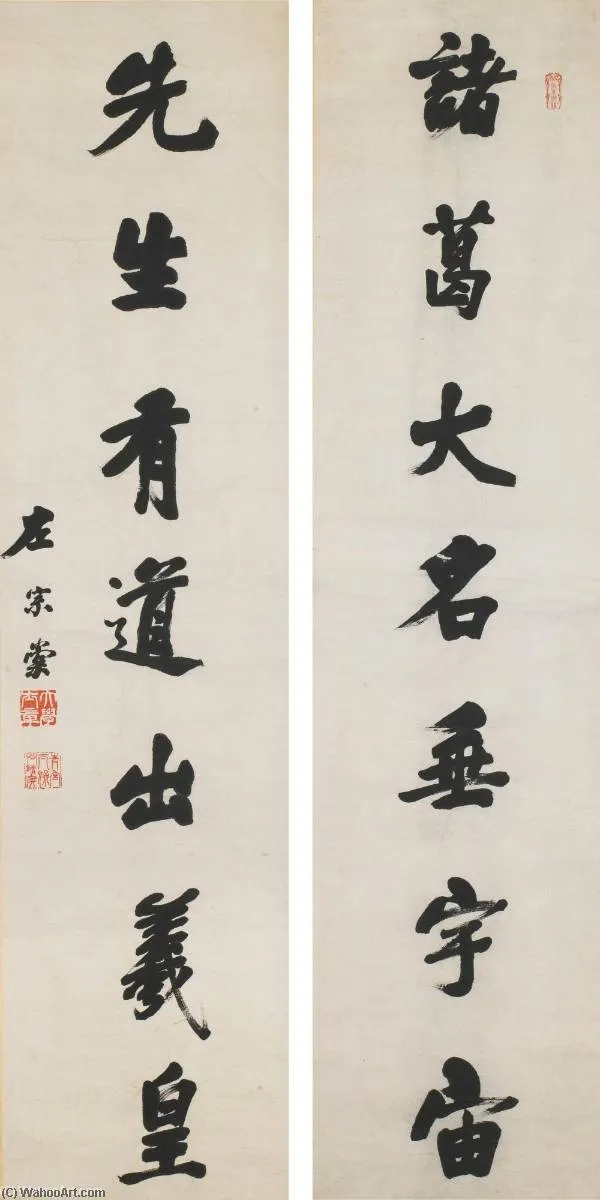 諸葛大名垂宇宙
先生有道出羲皇
左宗棠
大學士章
(C) WahooArt.com